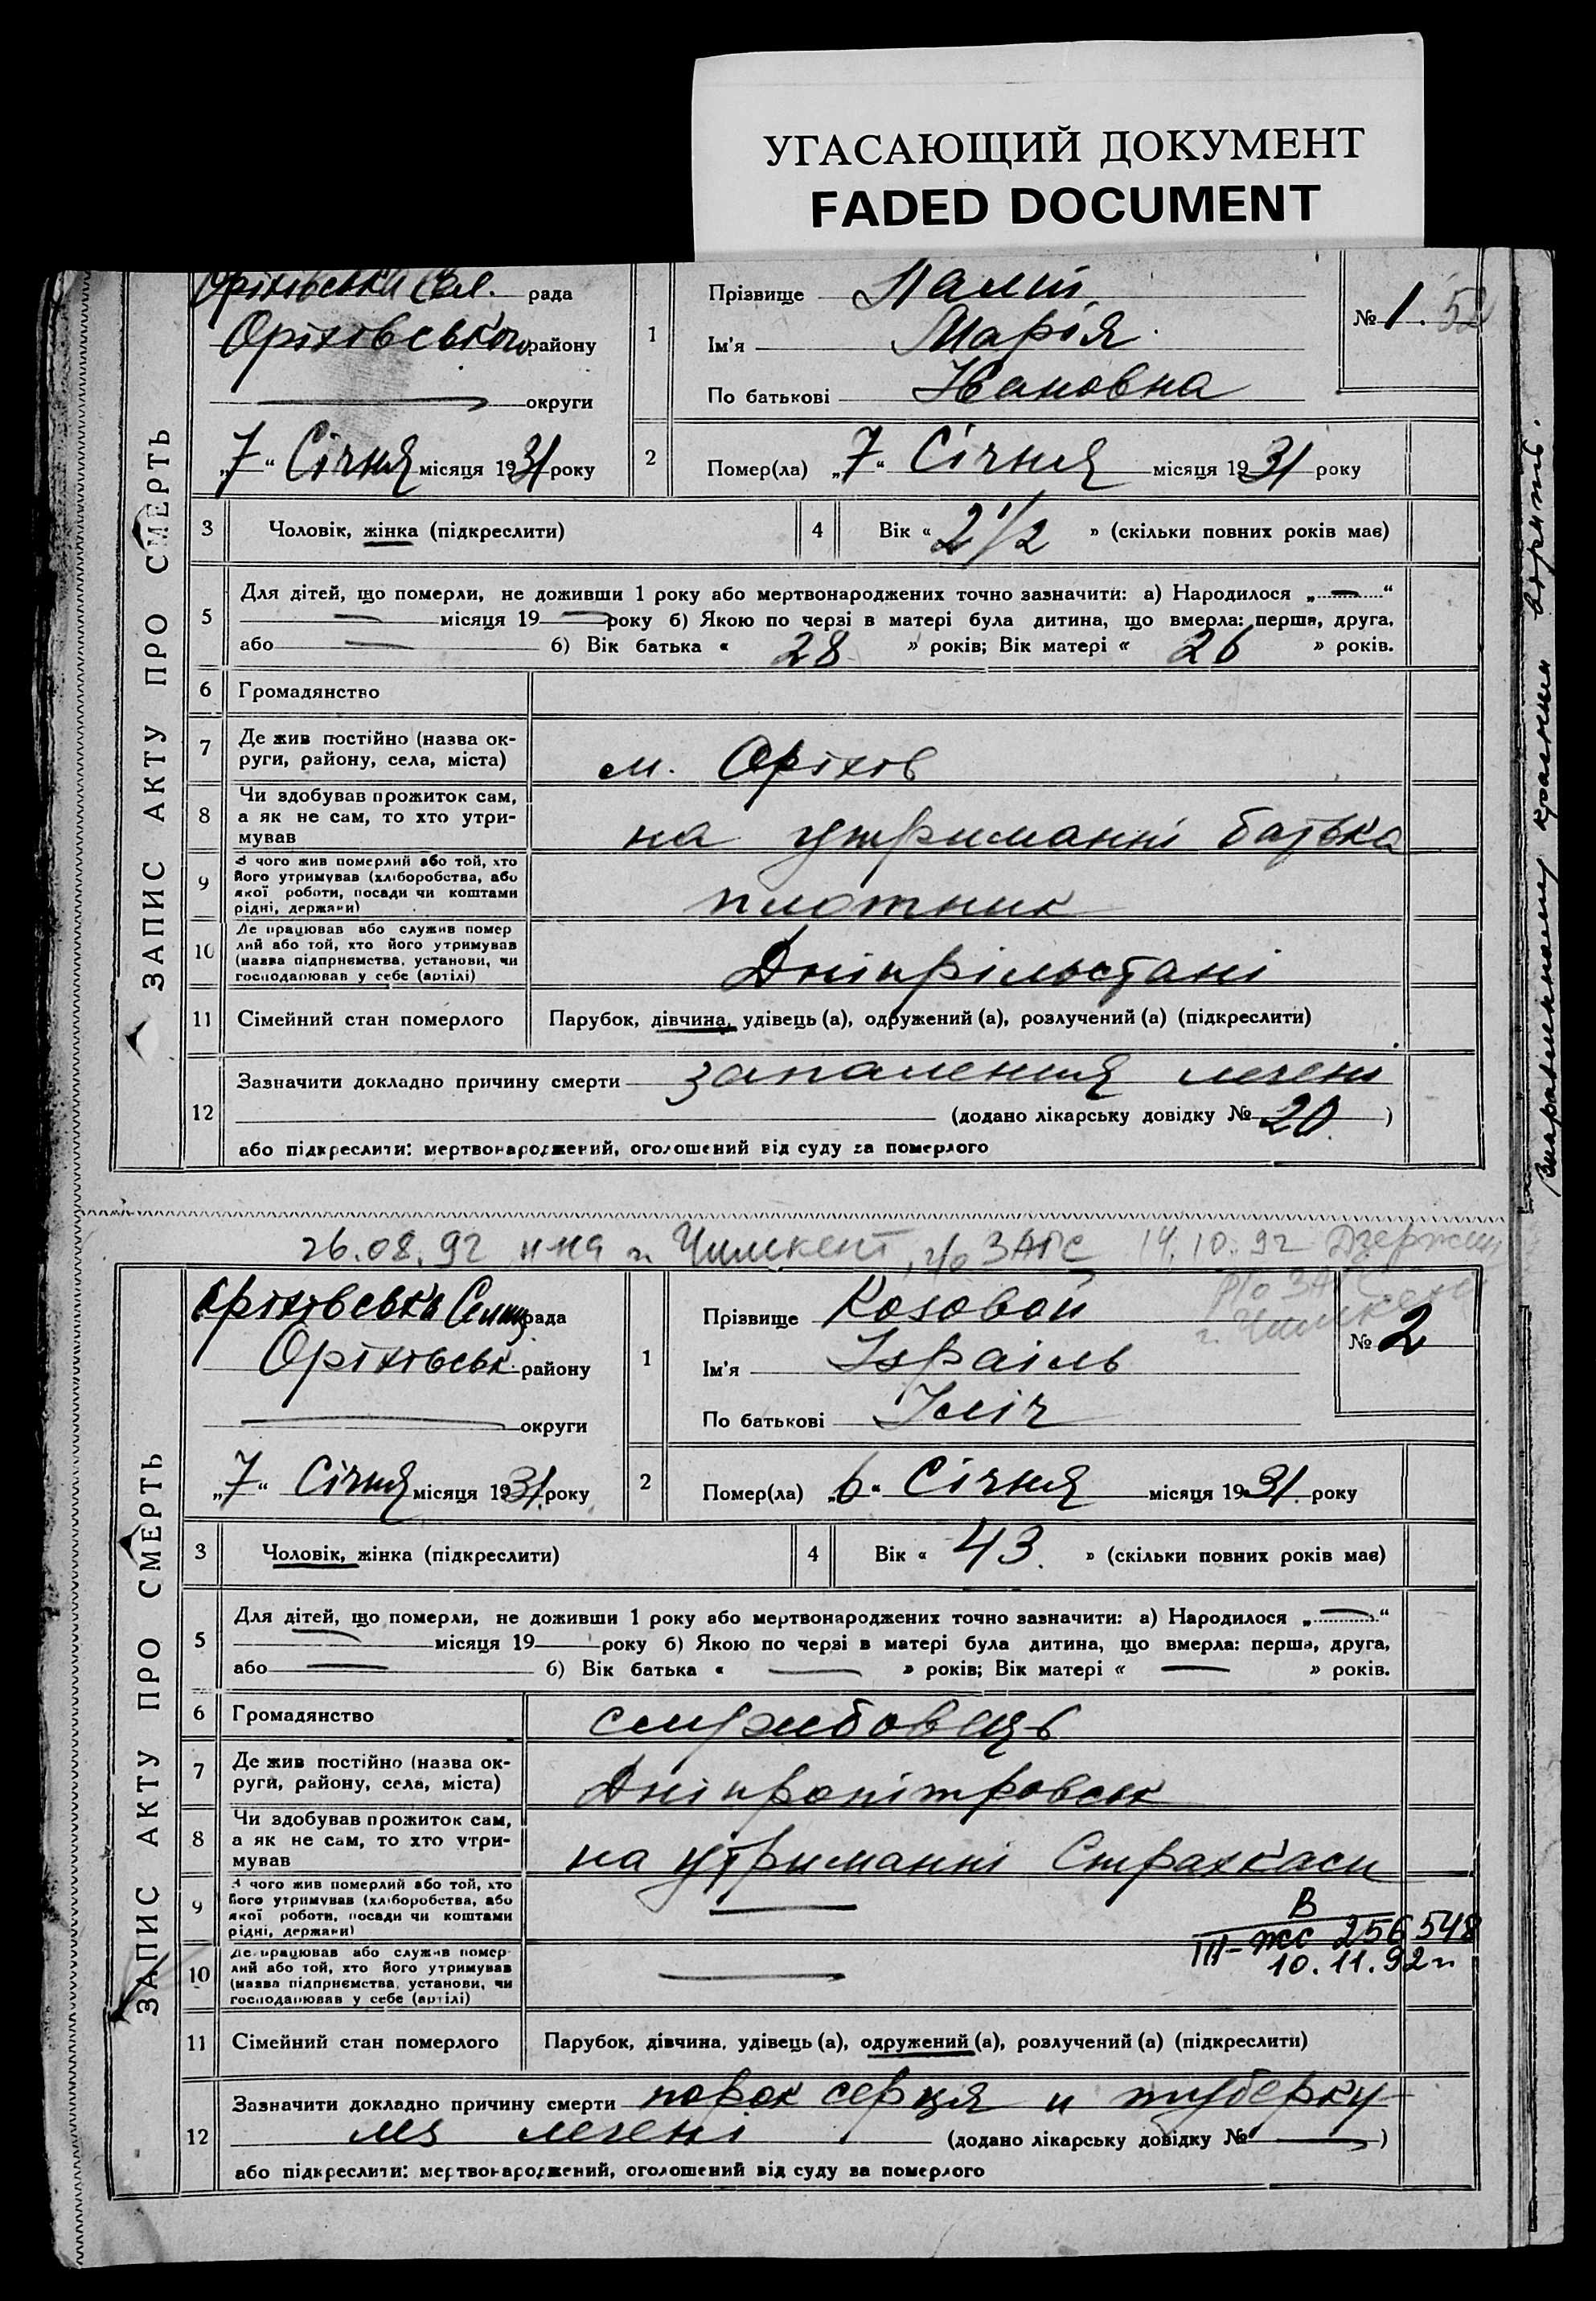 УГАСАЮЩИЙ ДОКУМЕНТ
FADED DOCUMENT
ЗАПИС АКТУ ПРО СМЕРТЬ
Оріхівська Сел. рада
Оріхівського району
округи
„7“ Січня місяця 1931 року
1
Прізвище
Ім'я Марія
По батькові Івановна
№ 1. 52
2
Помер(ла) „7“ Січня місяця 1931 року
3 Чоловік, жінка (підкреслити)
4 Вік « 2 1/2 » (скільки повних років має)
5 Для дітей, що померли, не доживши 1 року або мертвонароджених точно зазначити: а) Народилося „ — “
— місяця 19 — року б) Якою по черзі в матері була дитина, що вмерла: перша, друга,
або — б) Вік батька « 28 » років; Вік матері « 26 » років.
6 Громадянство
7 Де жив постійно (назва ок-
руги, району, села, міста)
м. Оріхів
8 Чи здобував прожиток сам,
а як не сам, то хто утри-
мував
на утриманні батька
9 З чого жив померлий або той, хто
його утримував (хліборобства, або
якої роботи, посади чи коштами
рідні, держави)
плотник
10 Де працював або служив помер
лий або той, хто його утримував
(назва підприємства, установи, чи
господарював у себе (артілі)
Дніпрільстані
11 Сімейний стан померлого
Парубок, дівчина, удівець (а), одружений (а), розлучений (а) (підкреслити)
12 Зазначити докладно причину смерти запалення легень
(додано лікарську довідку № 20 )
або підкреслити: мертвонароджений, оголошений від суду за померлого
вірить.
26.08.92 г. Чимкент, г/о ЗАГС 14.10.92
р/о ЗАГС
г. Чимкента
ЗАПИС АКТУ ПРО СМЕРТЬ
Оріхівська Селищ рада
Оріхівськ. району
округи
„7“ Січня місяця 1931. року
1
Прізвище Козовой
Ім'я Ізраіль
По батькові Ілліч
№ 2
2
Помер(ла) „6“ Січня місяця 1931. року
3 Чоловік, жінка (підкреслити)
4 Вік « 43. » (скільки повних років має)
5 Для дітей, що померли, не доживши 1 року або мертвонароджених точно зазначити: а) Народилося „ — “
— місяця 19 року б) Якою по черзі в матері була дитина, що вмерла: перша, друга,
або — б) Вік батька « — » років; Вік матері « — » років.
6 Громадянство
7 Де жив постійно (назва ок-
руги, району, села, міста)
Дніпропітровськ
8 Чи здобував прожиток сам,
а як не сам, то хто утри-
мував
на утриманні Страхкаси
9 З чого жив померлий або той, хто
його утримував (хліборобства, або
якої роботи, посади чи коштами
рідні, держави)
—
В
III-ЖС 256548
10.11.92 г.
10 Де працював або служив помер-
лий або той, хто його утримував
(назва підприємства, установи, чи
господарював у себе (артілі)
—
11 Сімейний стан померлого
Парубок, дівчина, удівець (а), одружений (а), розлучений (а) (підкреслити)
12 Зазначити докладно причину смерти порок серця и туберку-
лз легені (додано лікарську довідку № — )
або підкреслити: мертвонароджений, оголошений від суду за померлого